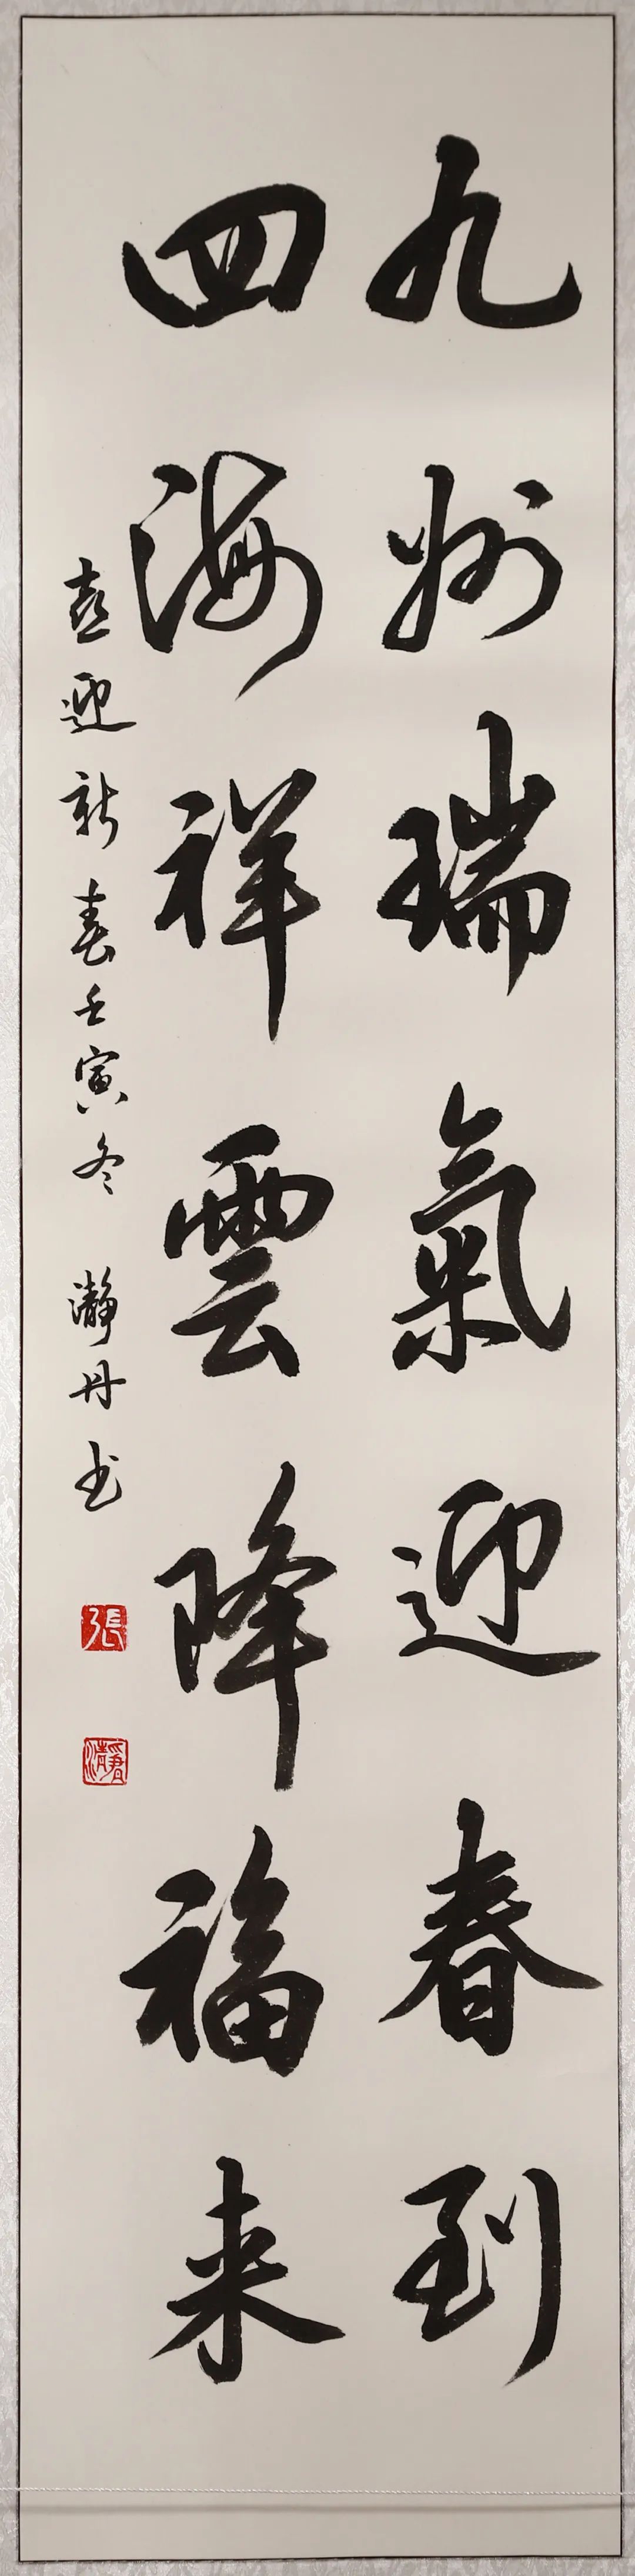 九州瑞氣迎春到
四海祥雲降福来
喜迎新春壬寅冬 瀞丹书
張
瀞君